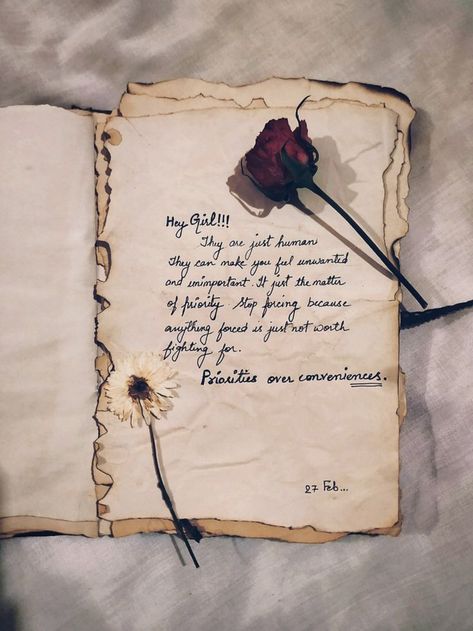 Hey Girl!!!
They are just human
They can make you feel unwanted
and unimportant. It just the matter
of priority. Stop forcing because
anything forced is just not worth
fighting for.
Priorities over conveniences.
27 Feb...